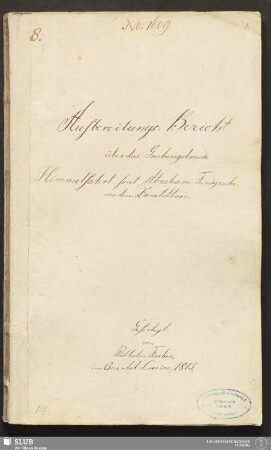 No: 1609
8.
Aufbereitungs-Bericht
über das Grubengebäude
Himmelfahrt samt Abraham Fundgrube
vor dem Donatsthor.
Gefertigt
von
Wilhelm Fischer,
im Quartal Luciae, 1845
SLUB
Wir führen Wissen.